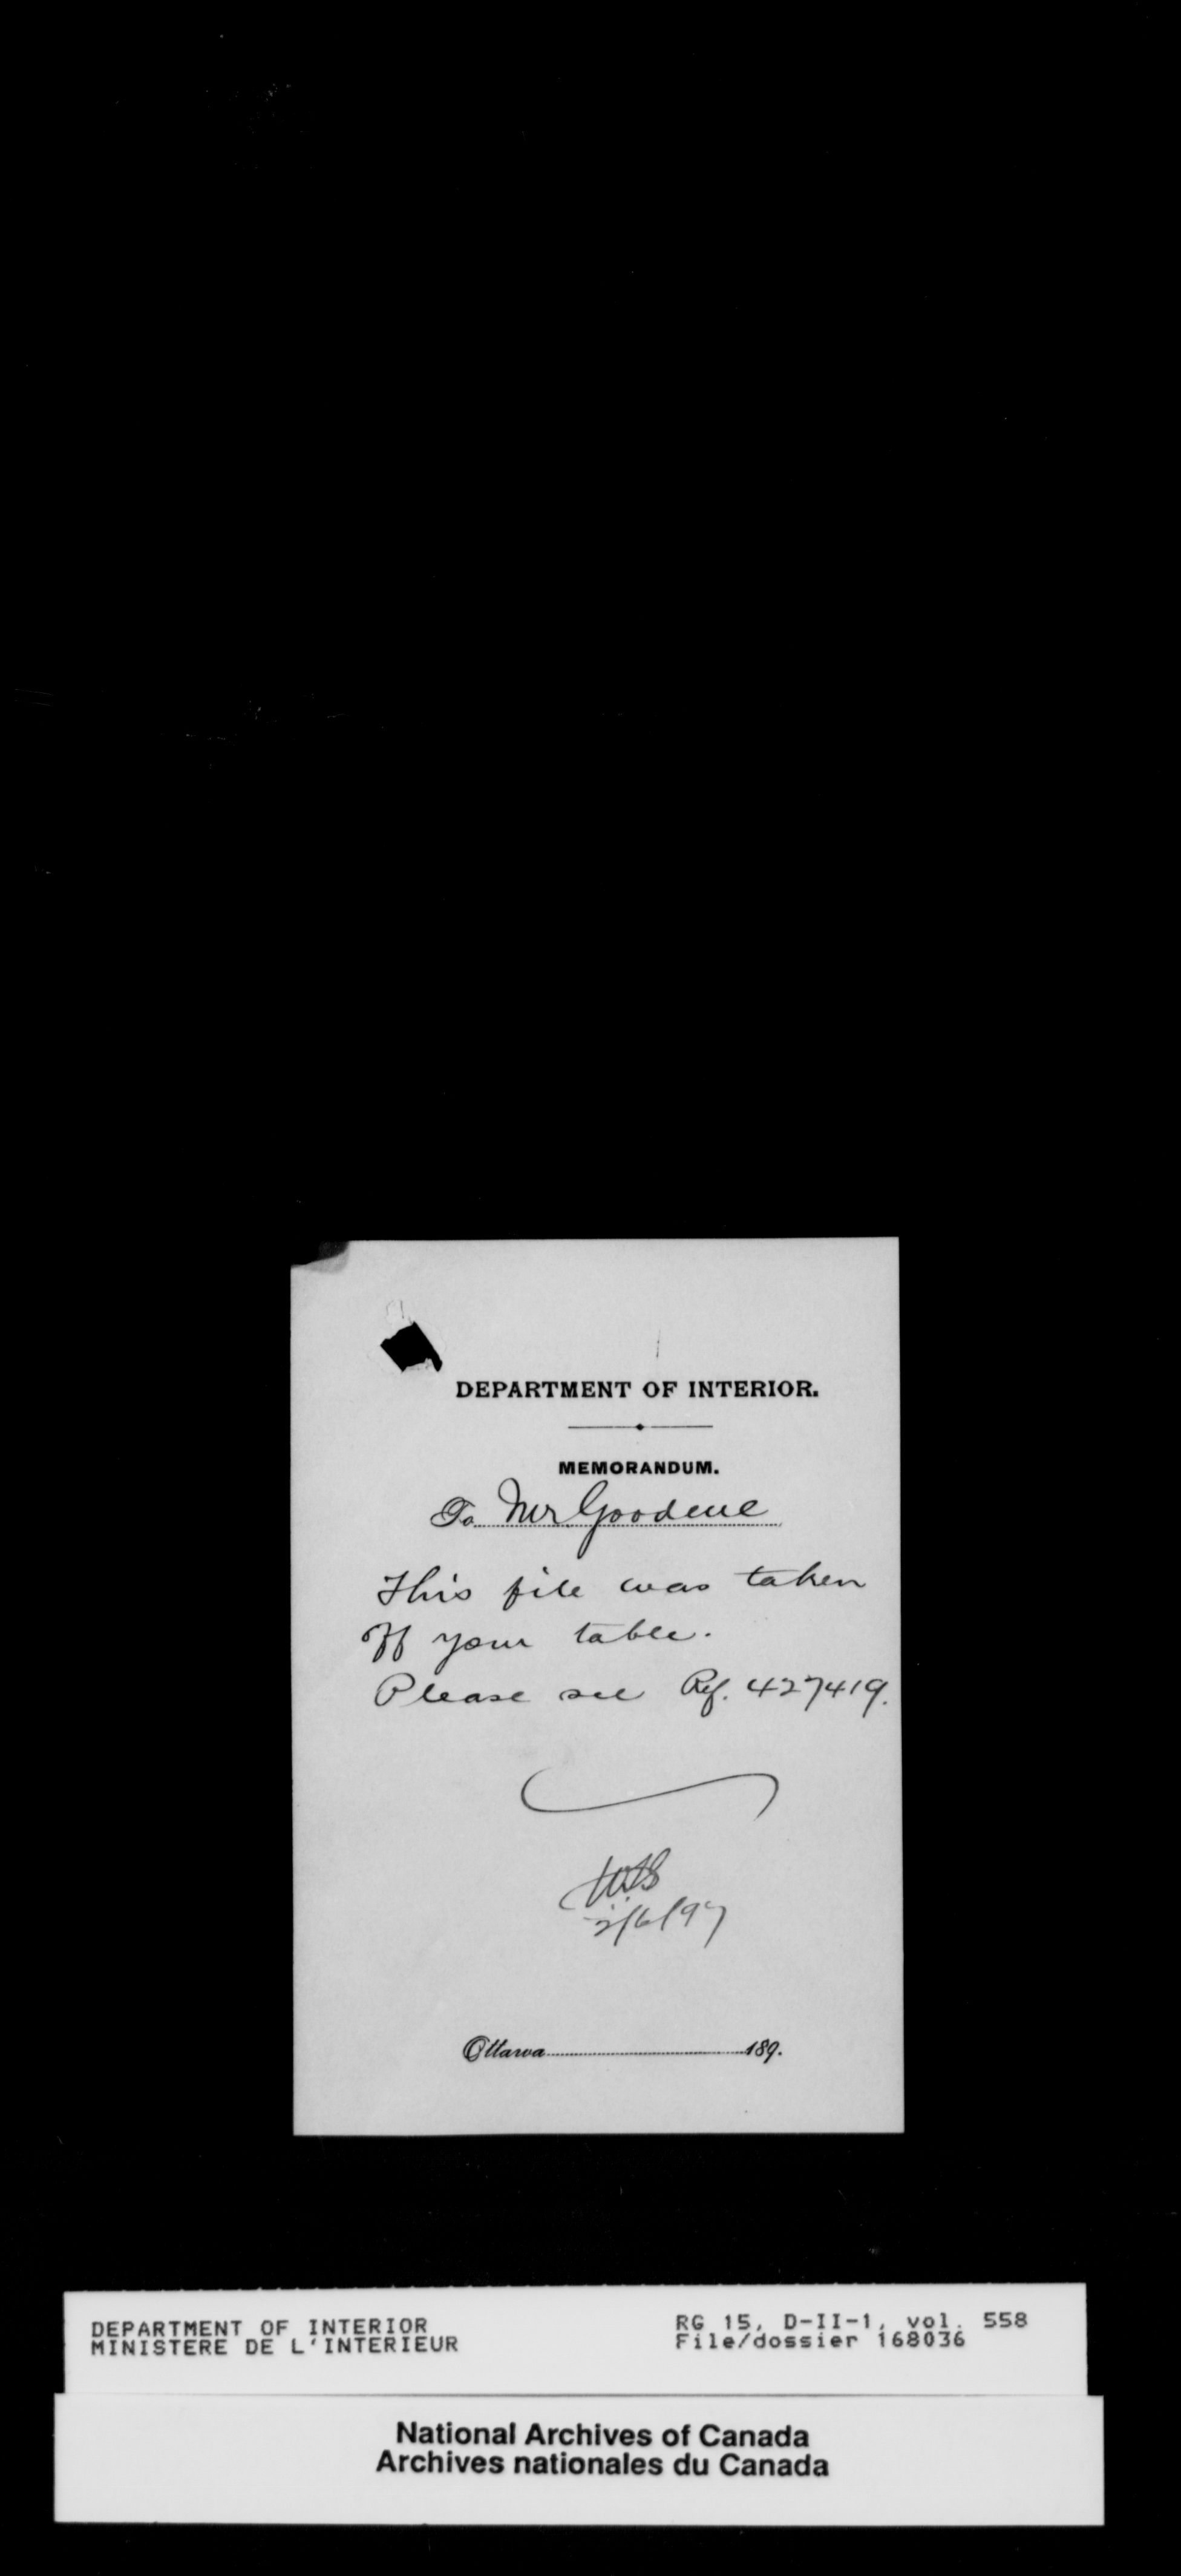 DEPARTMENT OF INTERIOR.
MEMORANDUM.
To Mr Goodeve
This file was taken
off your table.
Please see Ref. 427419.
2/6/97
Ottawa 189.
DEPARTMENT OF INTERIOR
MINISTERE DE L'INTERIEUR
RG 15, D-II-1, vol. 558
File/dossier 168036
National Archives of Canada
Archives nationales du Canada